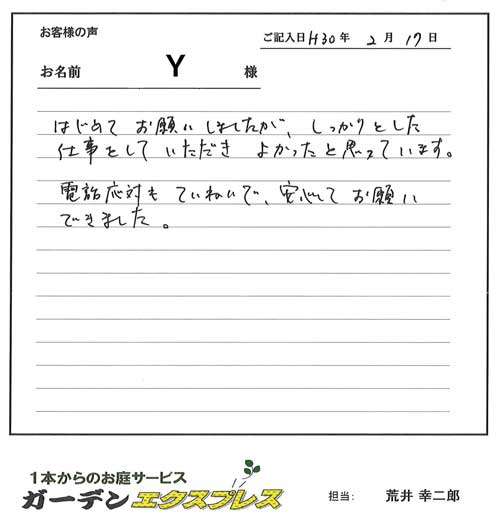 お客様の声
ご記入日 H30年 2月 17日
お名前 Y 様
はじめて お願いしましたが、しっかりとした
仕事をして いただき よかったと思っています。
電話応対も ていねいで、安心して お願い
できました。
1本からのお庭サービス
ガーデンエクスプレス
担当: 荒井 幸二郎